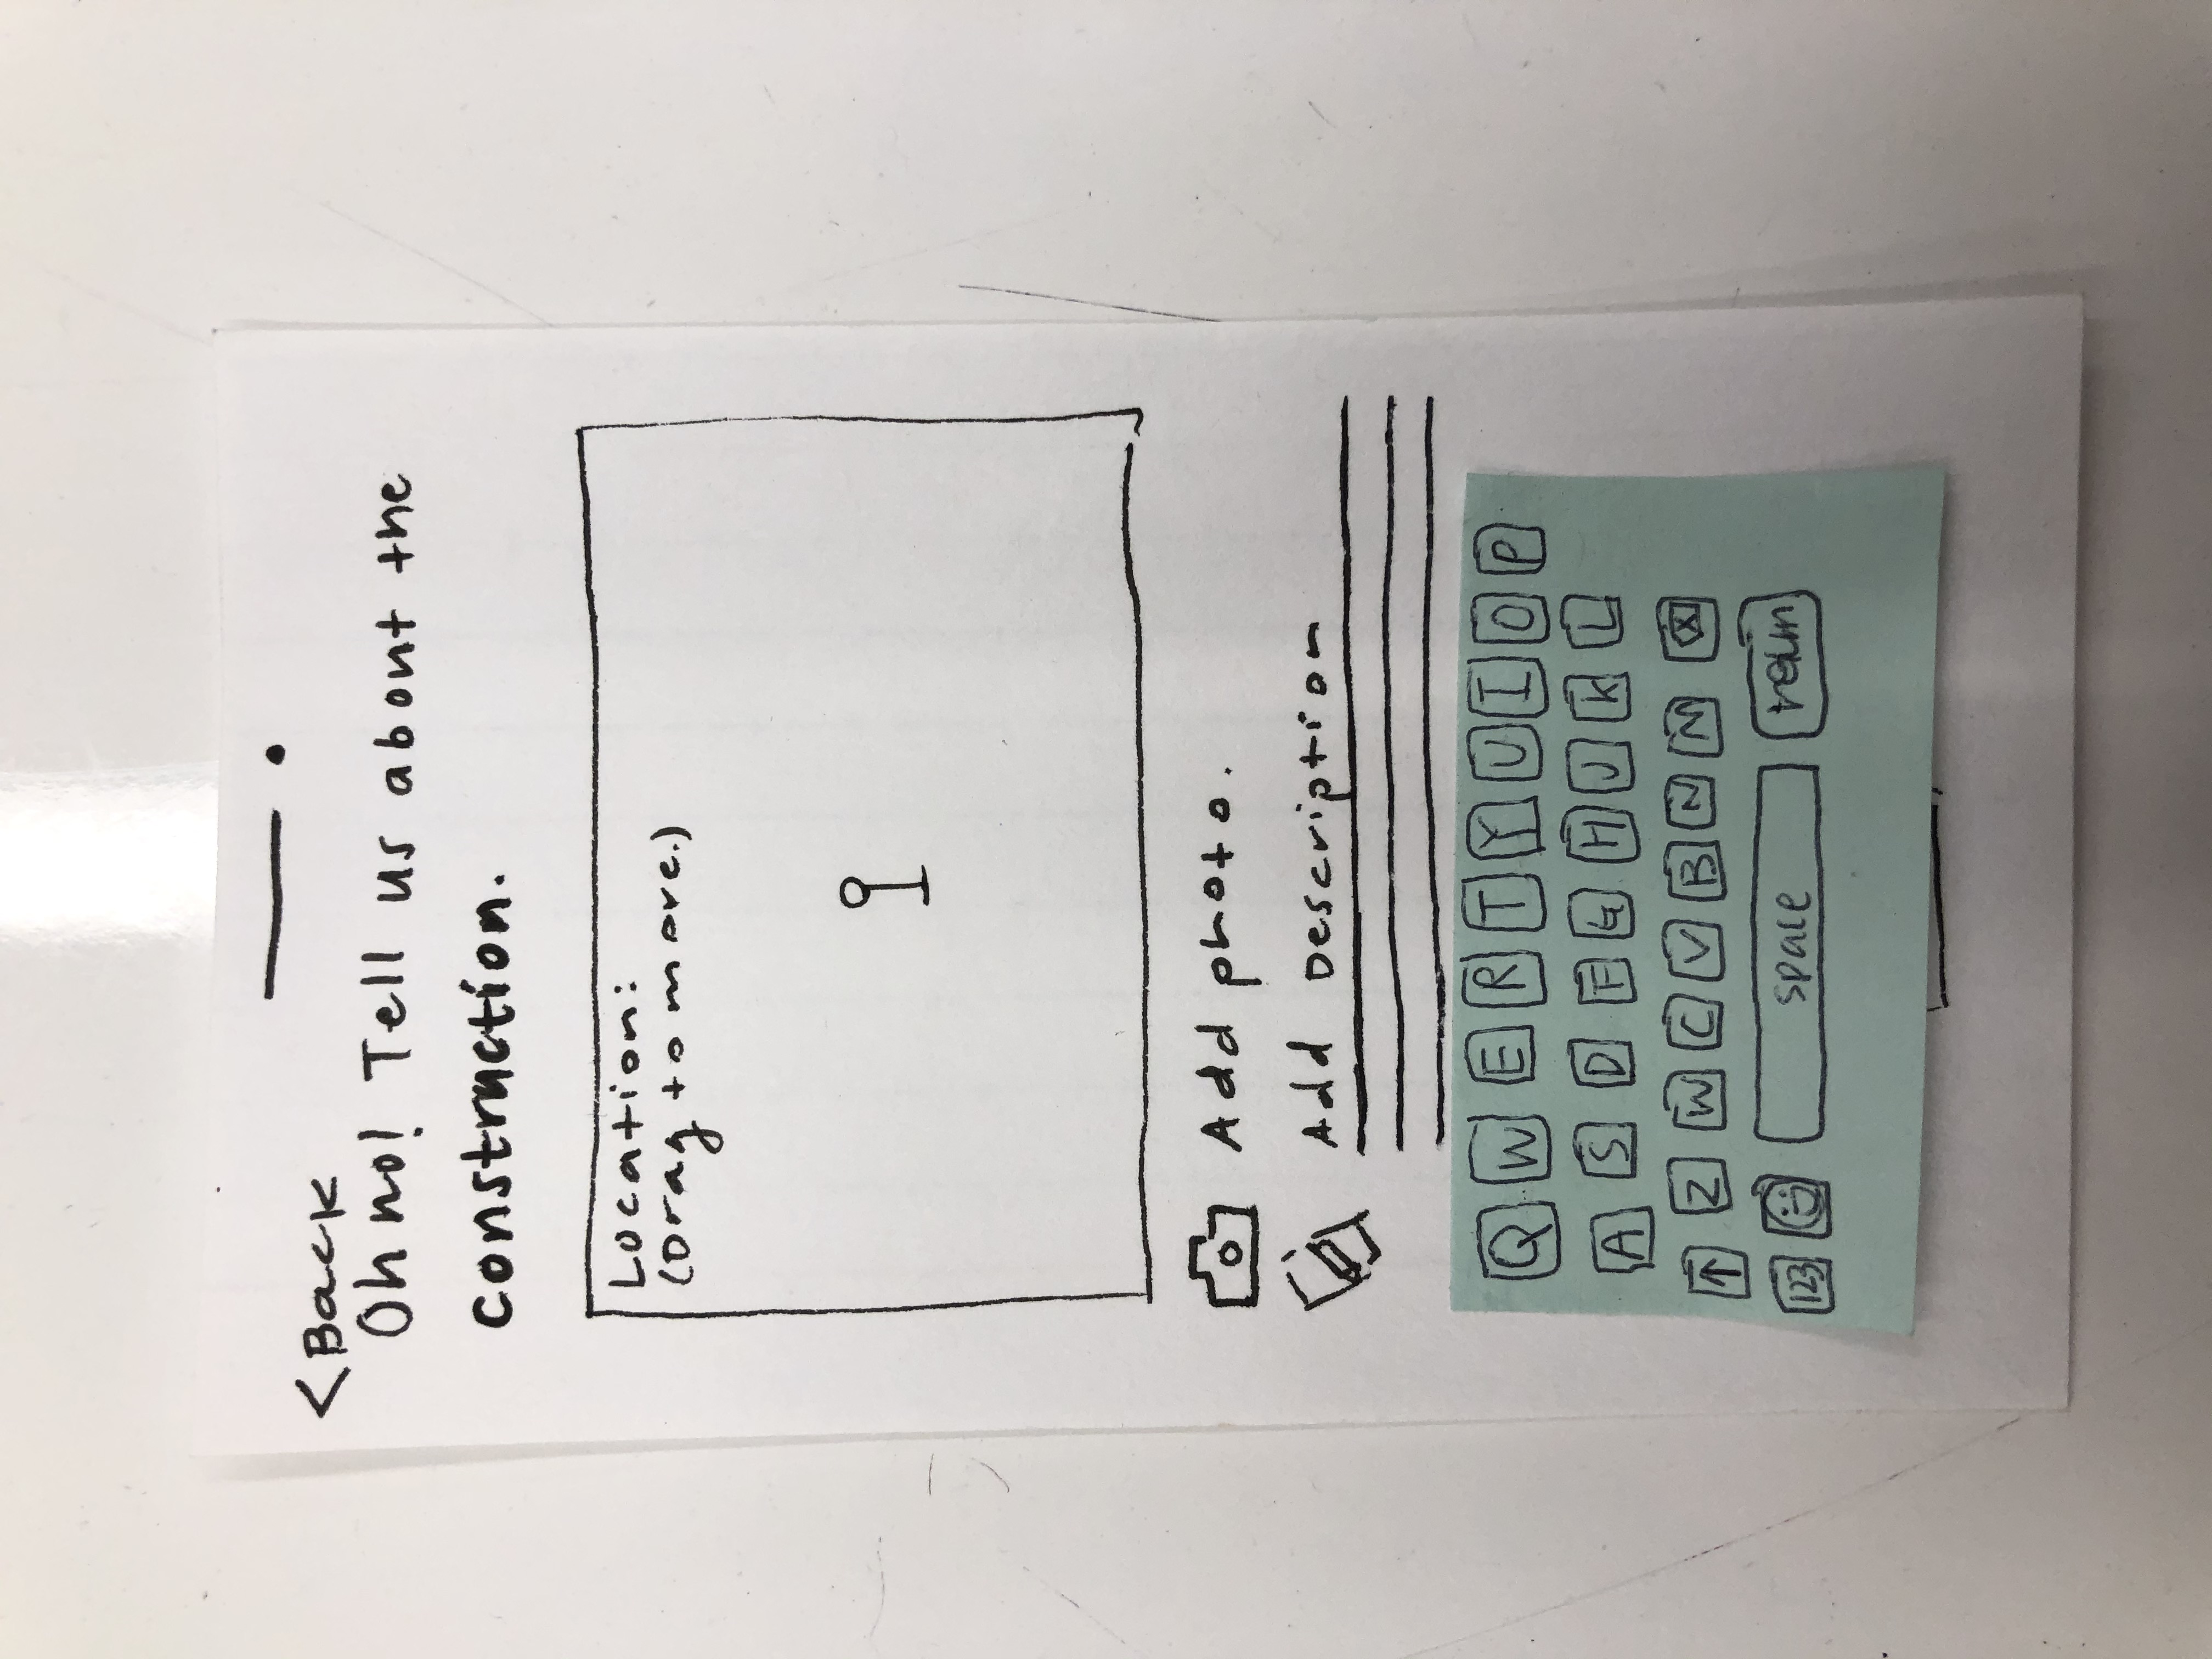 <Back
Oh no! Tell us about the
construction.
Location:
(Drag to move.)
Add photo.
Add Description
Q W E R T Y U I O P
A S D F G H J K L
↑ Z W C V B N M ⌫
123 space return